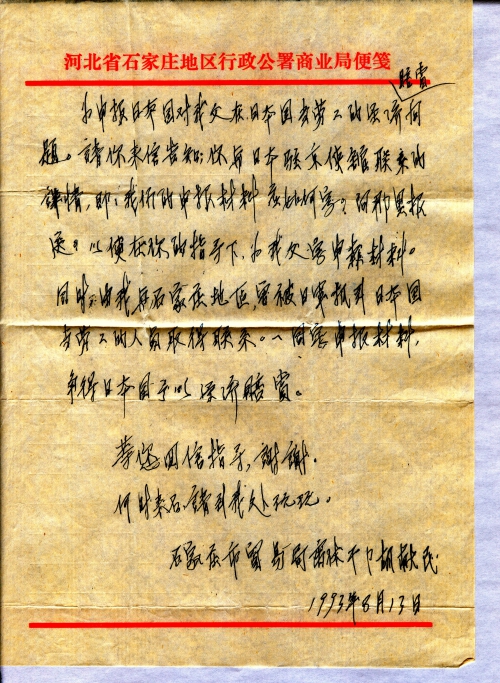 河北省石家庄地区行政公署商业局便笺
赔偿
为申报日本国对我父在日本国当劳工的经济问
题。請你来信告知:你与日本联系使館联系的
詳情,即:我们的申报材料应如何写?向那里报
送?以便在你的指导下,为我父写申报材料。
同时:由我与石家庄地区,曾被日軍抓到日本国
当劳工的人員取得联系。一同写申报材料,
争得日本国予以经济賠賞。
等您回信指示,謝謝。
何时来石請到我处玩玩。
石家庄市貿易局离休干卩胡献民
1993年8月13日